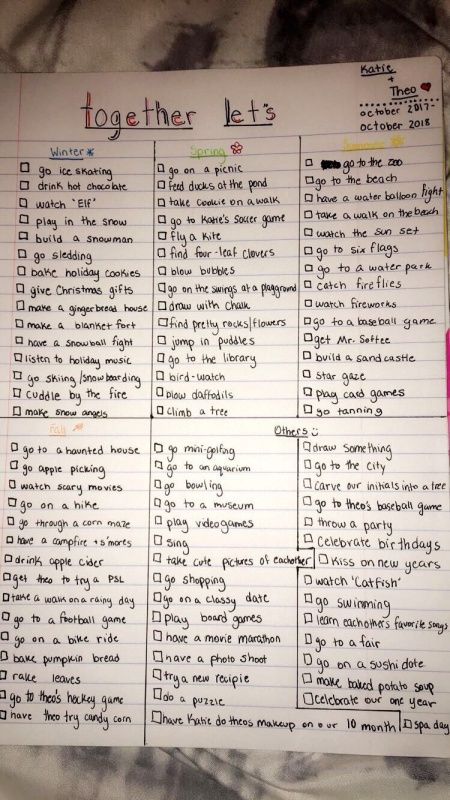 together let's
Katie
+
Theo
october 2017-
october 2018
Winter
go ice skating
drink hot chocolate
watch "Elf"
play in the snow
build a snowman
go sledding
bake holiday cookies
give Christmas gifts
make a gingerbread house
make a blanket fort
have a snowball fight
listen to holiday music
go skiing/snowboarding
cuddle by the fire
make snow angels
Spring
go on a picnic
feed ducks at the pond
take Cookie on a walk
go to Katie's soccer game
fly a kite
find four-leaf clovers
blow bubbles
go on the swings at a playground
draw with chalk
find pretty rocks/flowers
jump in puddles
go to the library
bird-watch
blow daffodils
climb a tree
Summer
go to the zoo
go to the beach
have a water balloon fight
take a walk on the beach
watch the sun set
go to six flags
go to a water park
catch fireflies
watch fireworks
go to a baseball game
get Mr. Softee
build a sandcastle
star gaze
play card games
go tanning
Fall
go to a haunted house
go apple picking
watch scary movies
go on a hike
go through a corn maze
have a campfire + s'mores
drink apple cider
get theo to try a PSL
take a walk on a rainy day
go to a football game
go on a bike ride
bake pumpkin bread
rake leaves
go to theo's hockey game
have theo try candy corn
Others :)
go mini-golfing
go to an aquarium
go bowling
go to a museum
play videogames
sing
take cute pictures of eachother
go shopping
go on a classy date
play board games
have a movie marathon
have a photo shoot
try a new recipie
do a puzzle
have Katie do theos makeup on our 10 month
spa day
draw something
go to the city
carve our initials into a tree
go to theo's baseball game
throw a party
celebrate birthdays
kiss on new years
watch "Catfish"
go swimming
learn eachothers favorite songs
go to a fair
go on a sushi date
make baked potato soup
celebrate our one year